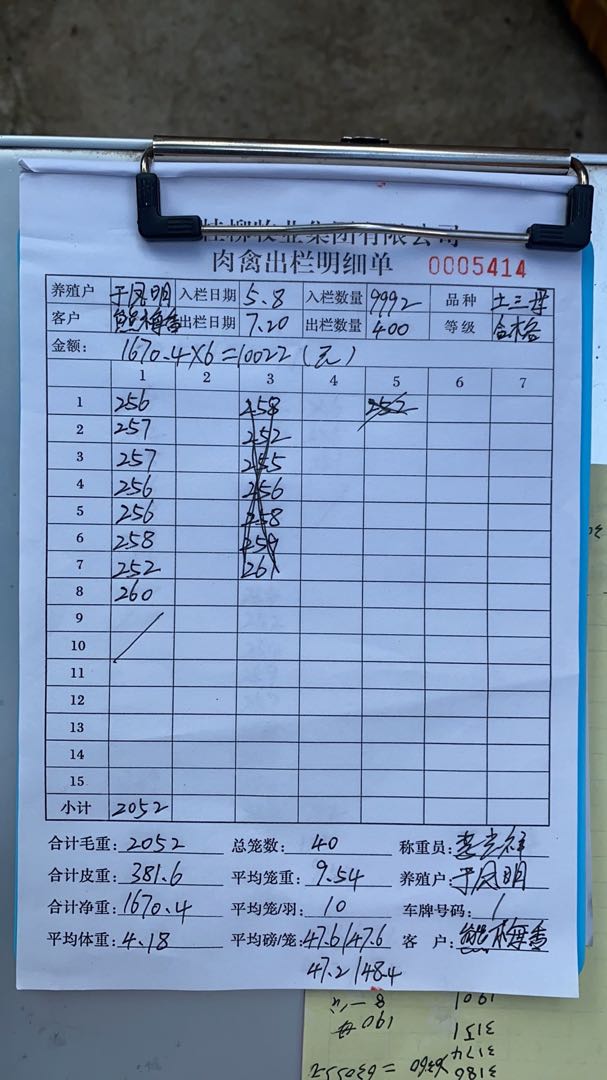 桂柳牧业集团有限公司
肉禽出栏明细单 0005414
养殖户 于凤明 入栏日期 5.8 入栏数量 9992 品种 土三母
客户 熊梅香 出栏日期 7.20 出栏数量 400 等级 合格
金额: 1670.4×6=10022(元)
1 2 3 4 5 6 7
1 256 258 252
2 257 252
3 257 255
4 256 256
5 256 258
6 258 259
7 252 261
8 260
9
10
11
12
13
14
15
小计 2052
合计毛重: 2052 总笼数: 40 称重员:
合计皮重: 381.6 平均笼重: 9.54 养殖户: 于凤明
合计净重: 1670.4 平均笼/羽: 10 车牌号码: /
平均体重: 4.18 平均磅/笼: 47.6/47.6 客户: 熊梅香
47.2/48.4
3151
3174
3186